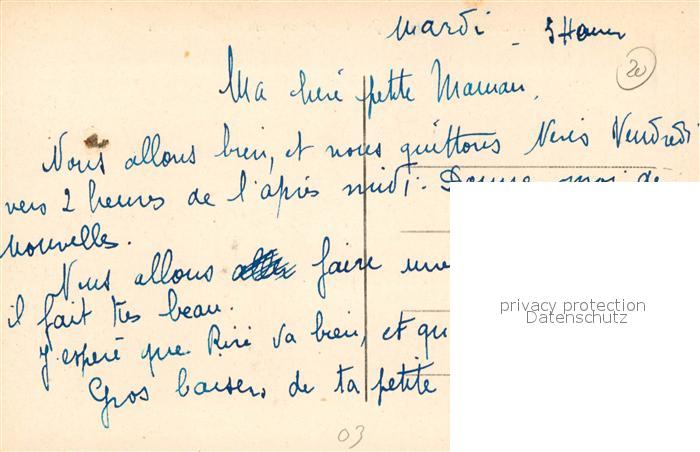 Mardi - 5 Heures
20
Ma cheré petite Maman,
Nous allons bien, et nous quittons Neris Vendredi
vers 2 heures de l'après midi. Donne moi de
nouvelles.
Nous allons faire une
il fait très beau.
J'esperé que Riri va bien, et qu
Gros baisers de ta petite
03
privacy protection
Datenschutz